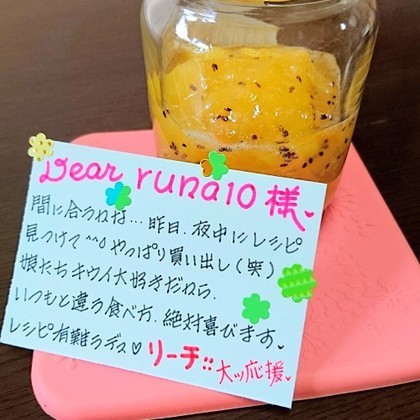 Dear runa10 様
間に合うわな... 昨日、夜中にレシピ
見つけて^^o やっぱり買い出し(笑)
娘たちキウイ大好きだから、
いつもと違う食べ方、絶対喜びます。
レシピ有難うデス♡ リーチ!! 大ッ応援